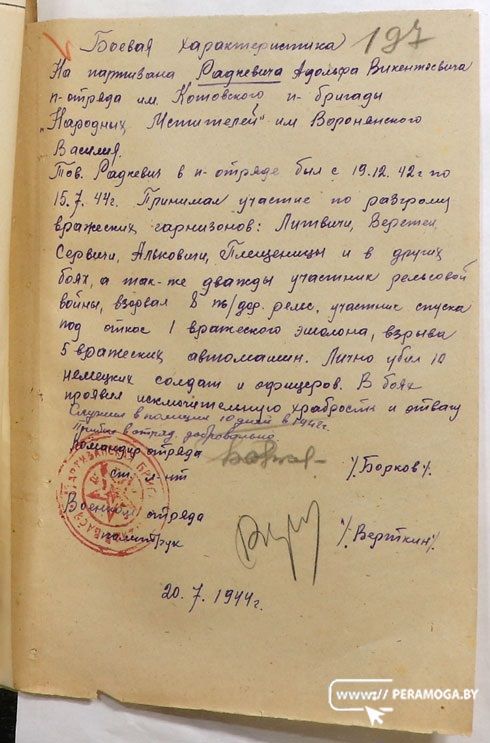 Боевая характеристика 197
На партизана Радкевича Адольфа Викентьевича
п-отряда им. Котовского п-бригады
"Народных Мстителей" им Воронянского
Василия.
Тов. Радкевич в п-отряде был с 19.12.42г по
15.7.44г. Принимал участие по разгрому
вражеских гарнизонов: Литвичи, Веретеи,
Сервичи, Альковичи, Плещеницы и в других
боях, а так-же дважды участник рельсовой
войны, взорвал 8 ж/дор. рельс, участник спуска
под откос 1 вражеского эшолона, взрыва
5 вражеских автомашин. Лично убил 10
немецких солдат и офицеров. В боях
проявил исключительную храбрость и отвагу
Служил в полиции 10 дней в 1942г.
Прибыл в отряд добровольно
Командир отряда
ст. л-нт /Борков/.
Военком отряда
политрук /Верткин/.
20.7.1944г.
www:// PERAMOGA.BY